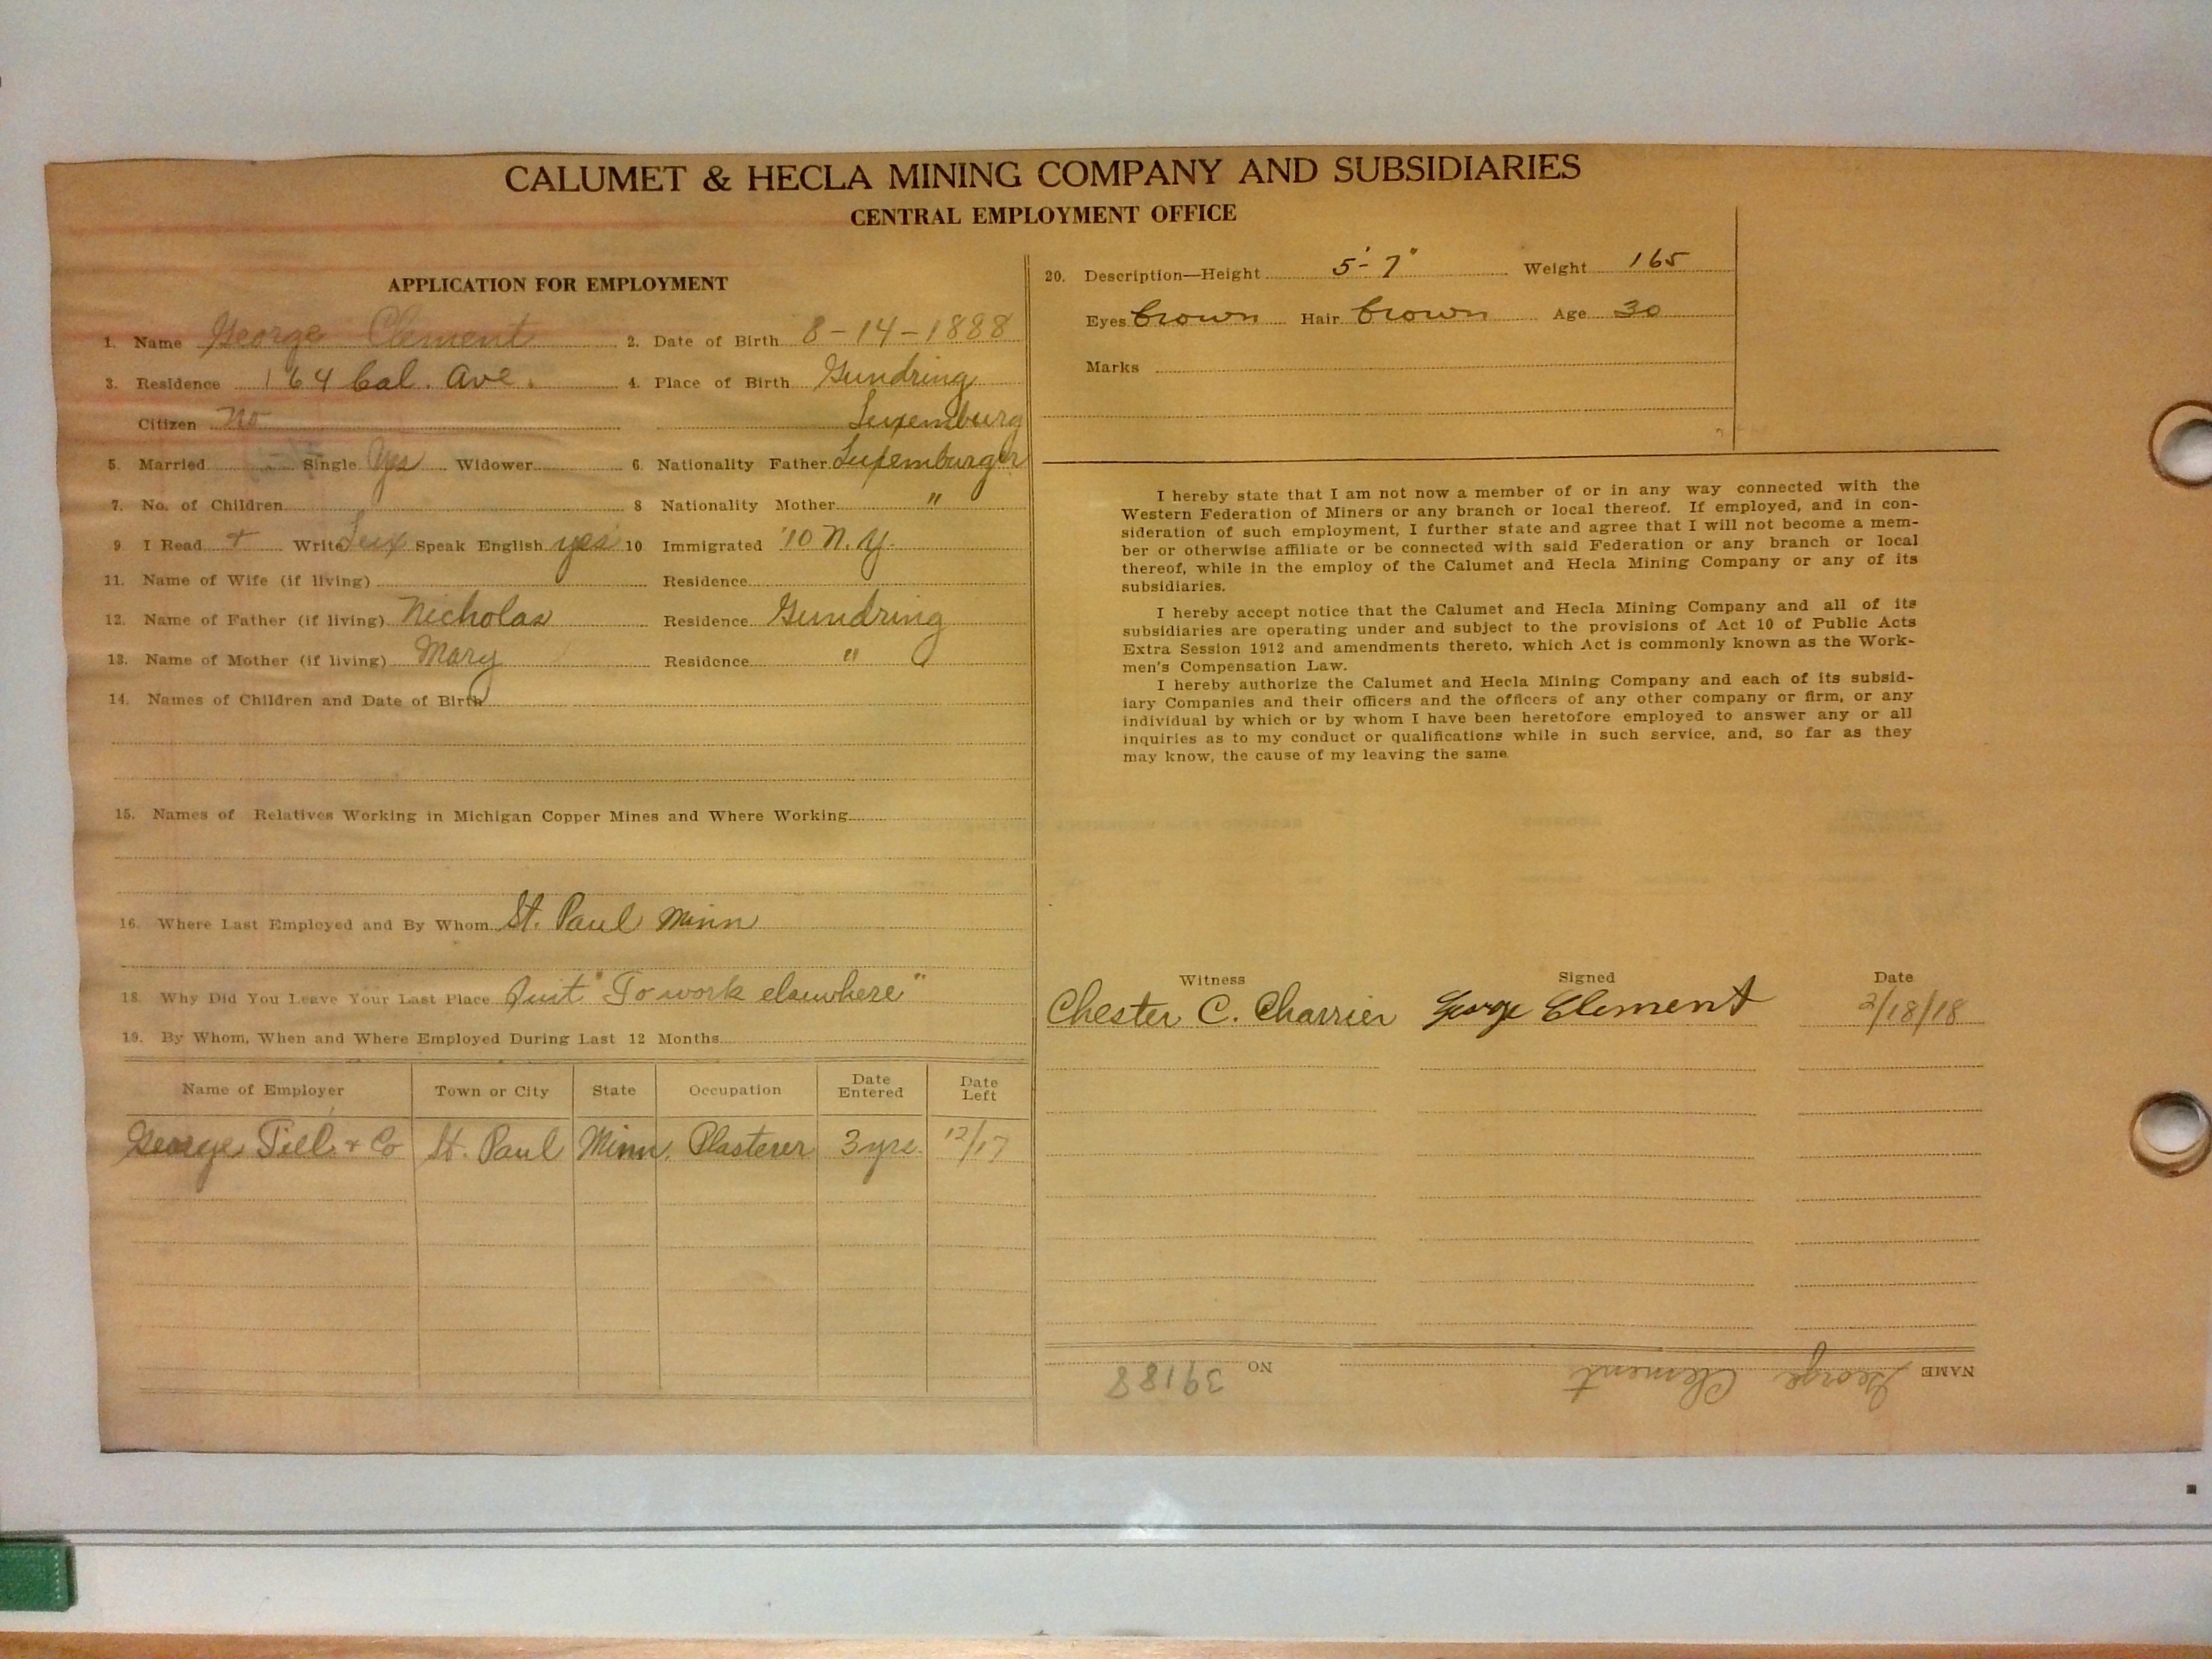 CALUMET & HECLA MINING COMPANY AND SUBSIDIARIES
CENTRAL EMPLOYMENT OFFICE
APPLICATION FOR EMPLOYMENT
1. Name George Clement 2. Date of Birth 8-14-1888
3. Residence 164 Cal. Ave. 4. Place of Birth Gundring
Citizen No Luxemburg
5. Married Single Yes Widower 6. Nationality Father Luxemburger
7. No. of Children 8 Nationality Mother "
9 I Read + Write Lux Speak English yes 10 Immigrated '10 N.Y.
11. Name of Wife (if living) Residence
12. Name of Father (if living) Nicholas Residence Gundring
13. Name of Mother (if living) Mary Residence "
14. Names of Children and Date of Birth
15. Names of Relatives Working in Michigan Copper Mines and Where Working
16. Where Last Employed and By Whom St. Paul Minn
18. Why Did You Leave Your Last Place Quit "To work elsewhere"
19. By Whom, When and Where Employed During Last 12 Months
Name of Employer Town or City State Occupation Date Entered Date Left
George & Co St. Paul Minn. Plasterer 3 yrs. 12/17
20. Description—Height 5'-7" Weight 165
Eyes brown Hair brown Age 30
Marks
I hereby state that I am not now a member of or in any way connected with the
Western Federation of Miners or any branch or local thereof. If employed, and in con-
sideration of such employment, I further state and agree that I will not become a mem-
ber or otherwise affiliate or be connected with said Federation or any branch or local
thereof, while in the employ of the Calumet and Hecla Mining Company or any of its
subsidiaries.
I hereby accept notice that the Calumet and Hecla Mining Company and all of its
subsidiaries are operating under and subject to the provisions of Act 10 of Public Acts
Extra Session 1912 and amendments thereto, which Act is commonly known as the Work-
men's Compensation Law.
I hereby authorize the Calumet and Hecla Mining Company and each of its subsid-
iary Companies and their officers and the officers of any other company or firm, or any
individual by which or by whom I have been heretofore employed to answer any or all
inquiries as to my conduct or qualifications while in such service, and, so far as they
may know, the cause of my leaving the same
Witness Signed Date
Chester C. Charrier George Clement 2/18/18
NAME George Clement NO 39188